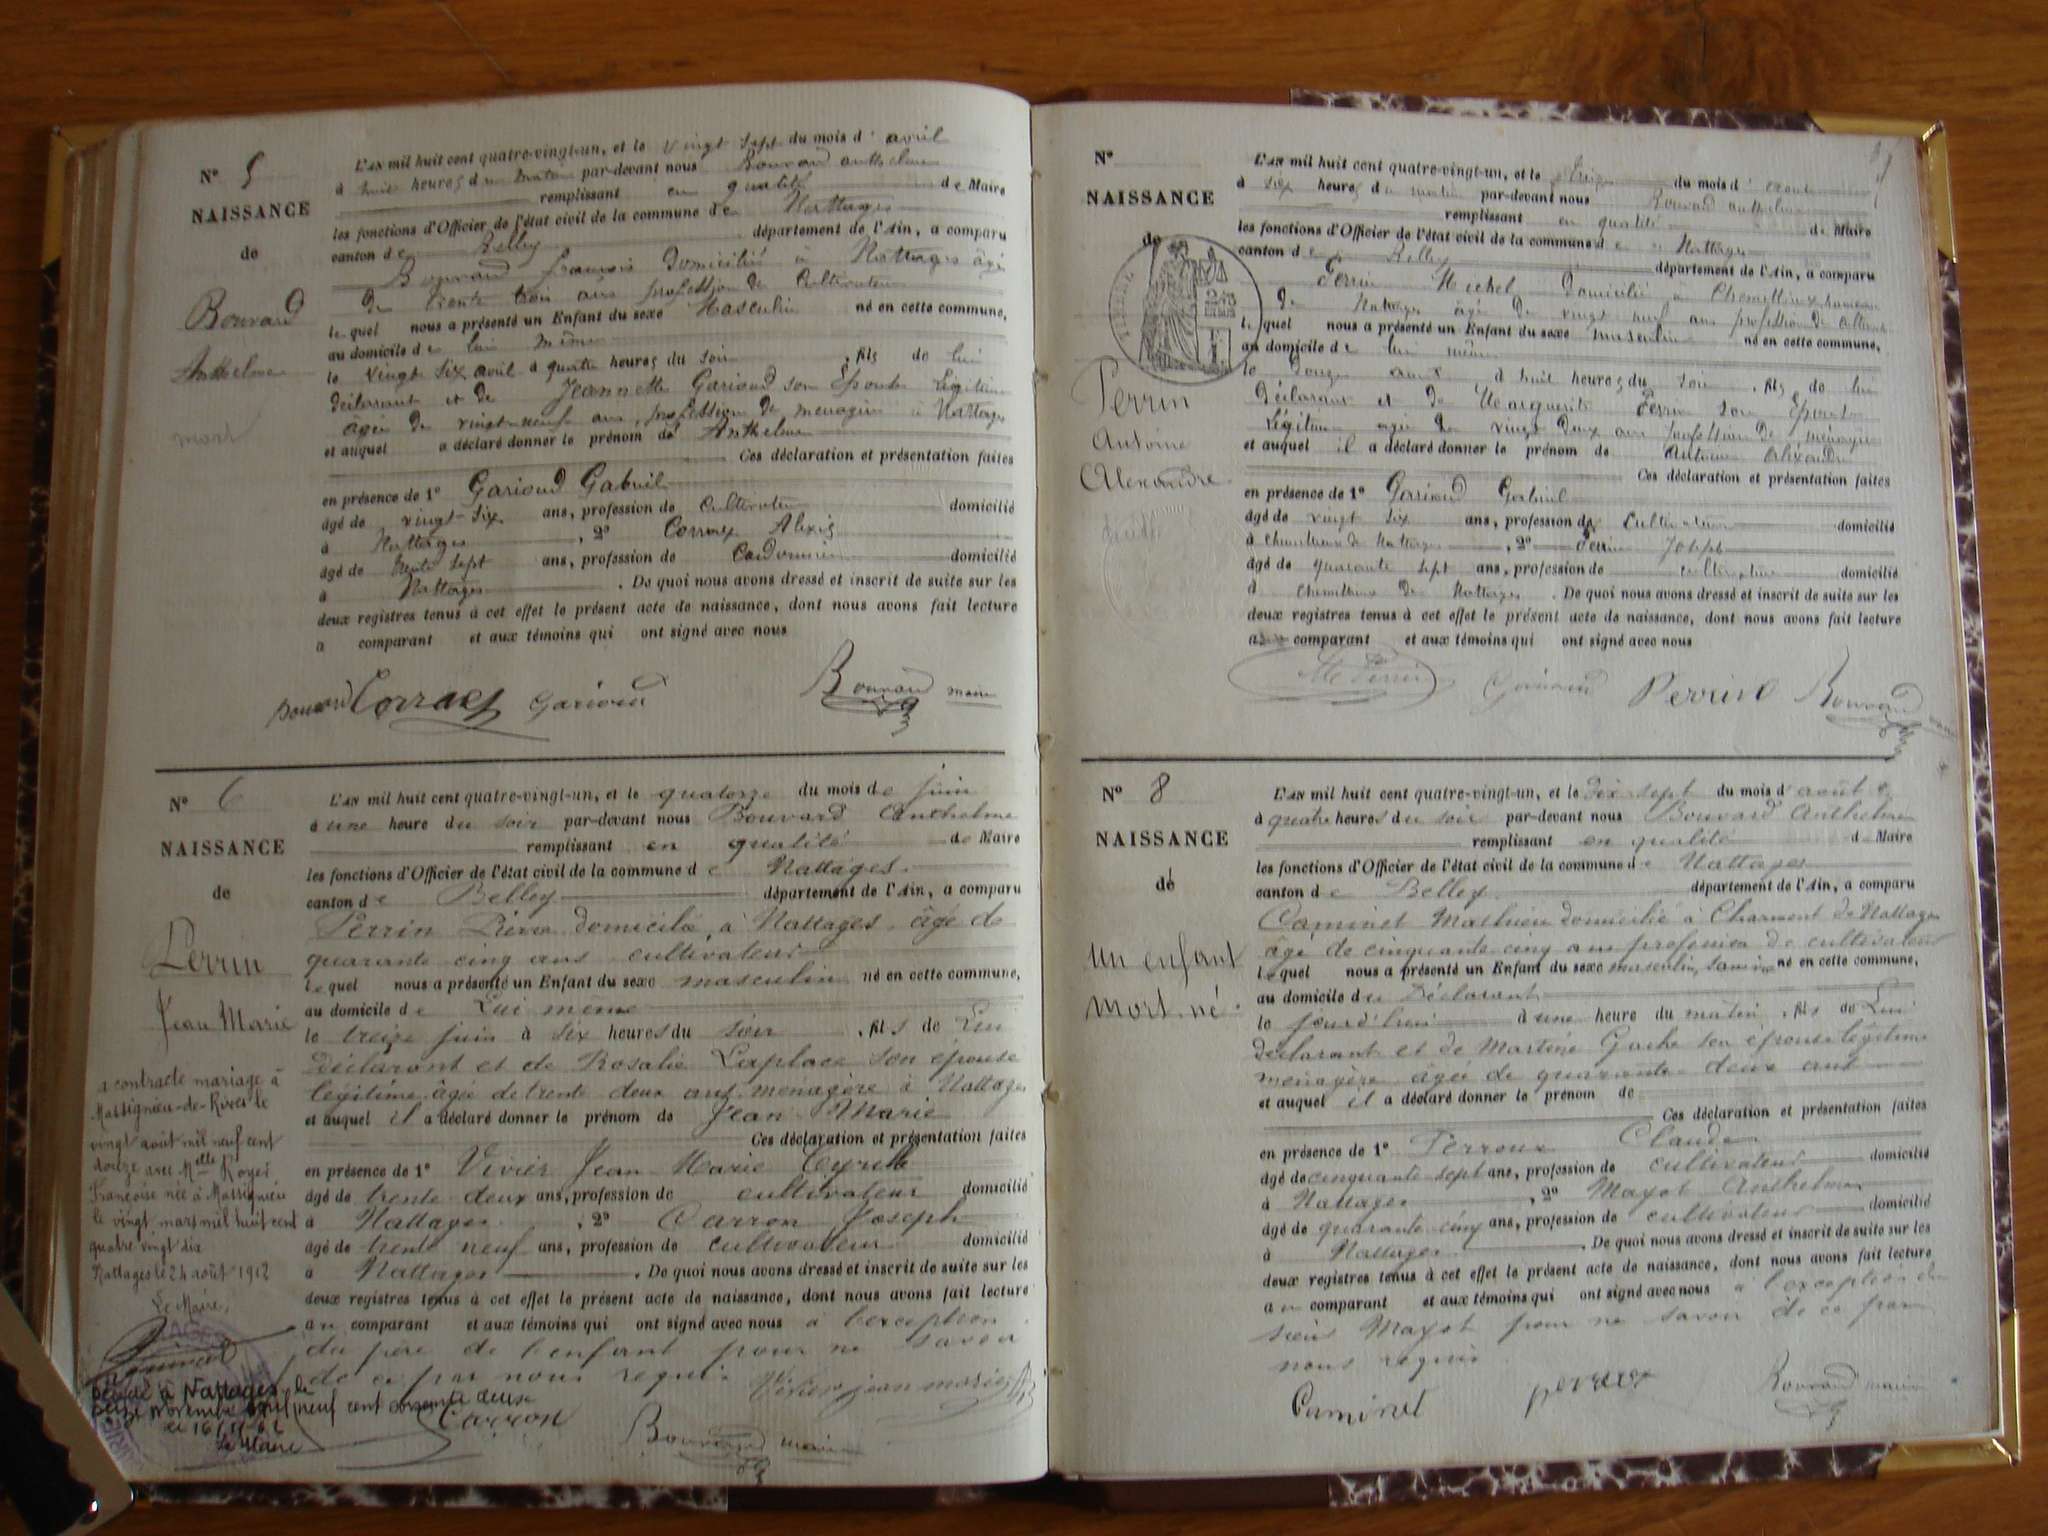 N° 5
NAISSANCE
de
Bouvard
Anthelme
mort
L'AN mil huit cent quatre-vingt-un, et le vingt sept du mois d'avril
à huit heures du matin par-devant nous Bouvard anthelme
remplissant en qualité de Maire
les fonctions d'Officier de l'état civil de la commune de Nattages
canton de Belley département de l'Ain, a comparu
Bouvard françois domicilié à Nattages âgé
de trente trois ans profession de Cultivateur
lequel nous a présenté un Enfant du sexe Masculin né en cette commune,
au domicile de lui même
le vingt six avril à quatre heures du soir, fils de lui
déclarant et de Jeannette Garioud son Épouse Légitime
âgée de vingt-neuf ans, profession de menagère à Nattages
et auquel a déclaré donner le prénom de Anthelme
Ces déclaration et présentation faites
en présence de 1° Garioud Gabriel
âgé de vingt-six ans, profession de Cultivateur domicilié
à Nattages, 2° Alexis
âgé de trente sept ans, profession de Cordonnier domicilié
à Nattages. De quoi nous avons dressé et inscrit de suite sur les
deux registres tenus à cet effet le présent acte de naissance, dont nous avons fait lecture
a comparant et aux témoins qui ont signé avec nous
Bouvard Garioud Bouvard maire
N° 6
NAISSANCE
de
Perrin
Jean Marie
a contracté mariage à
Massignieu-de-Rives le
vingt août mil neuf cent
douze avec Melle Royer
Françoise née à Massignieu
le vingt mars mil huit cent
quatre vingt dix
Nattages le 24 août 1912
Le Maire,
Décédé à Nattages le
seize novembre mil neuf cent soixante deux
Le Maire
L'AN mil huit cent quatre-vingt-un, et le quatorze du mois de juin
à une heure du soir par-devant nous Bouvard Anthelme
remplissant en qualité de Maire
les fonctions d'Officier de l'état civil de la commune de Nattages.
canton de Belley département de l'Ain, a comparu
Perrin Pierre domicilié, à Nattages, âgé de
quarante cinq ans cultivateur
lequel nous a présenté un Enfant du sexe masculin né en cette commune,
au domicile de Lui même
le treize juin à six heures du soir, fils de Lui
Déclarant et de Rosalie Laplace son épouse
légitime âgée de trente deux ans menagère à Nattages
et auquel il a déclaré donner le prénom de Jean Marie
Ces déclaration et présentation faites
en présence de 1° Vivier Jean Marie
âgé de trente deux ans, profession de cultivateur domicilié
à Nattages, 2° Carron Joseph
âgé de trente neuf ans, profession de cultivateur domicilié
à Nattages. De quoi nous avons dressé et inscrit de suite sur les
deux registres tenus à cet effet le présent acte de naissance, dont nous avons fait lecture
au comparant et aux témoins qui ont signé avec nous à l'exception
du père de l'enfant pour ne savoir
de ce par nous requis. Vivier jean marie
Carron
Bouvard maire
N°
NAISSANCE
de
Perrin
Antoine
Alexandre
L'AN mil huit cent quatre-vingt-un, et le treize du mois d'août
à six heures du matin par-devant nous Bouvard anthelme
remplissant en qualité de Maire
les fonctions d'Officier de l'état civil de la commune de Nattages
canton de Belley département de l'Ain, a comparu
Perrin Michel domicilié à hameau
de Nattages âgé de vingt neuf ans profession de
lequel nous a présenté un Enfant du sexe masculin né en cette commune,
au domicile de lui même
le douze août à huit heures du soir, fils de lui
Déclarant et de Marguerite Perrin son Épouse
Légitime âgée de vingt deux ans profession de ménagère
et auquel il a déclaré donner le prénom de Antoine Alexandre
Ces déclaration et présentation faites
en présence de 1° Garioud Gabriel
âgé de vingt six ans, profession de Cultivateur domicilié
à de Nattages, 2° Perrin Joseph
âgé de quarante sept ans, profession de cultivateur domicilié
à de Nattages. De quoi nous avons dressé et inscrit de suite sur les
deux registres tenus à cet effet le présent acte de naissance, dont nous avons fait lecture
au comparant et aux témoins qui ont signé avec nous
Perrin Garioud Perrin Bouvard
N° 8
NAISSANCE
de
Un enfant
mort-né.
L'AN mil huit cent quatre-vingt-un, et le dix sept du mois d'août
à quatre heures du soir par-devant nous Bouvard Anthelme
remplissant en qualité de Maire
les fonctions d'Officier de l'état civil de la commune de Nattages
canton de Belley département de l'Ain, a comparu
Caminet Mathieu domicilié à Charmont de Nattages
âgé de cinquante cinq ans profession de cultivateur
lequel nous a présenté un Enfant du sexe masculin, sans vie né en cette commune,
au domicile du Déclarant
le jourd'hui à une heure du matin, fils de Lui
déclarant et de Martine Gache son épouse légitime
menagère âgée de quarante-deux ans
et auquel il a déclaré donner le prénom de
Ces déclaration et présentation faites
en présence de 1° Perroux Claude
âgé de cinquante sept ans, profession de cultivateur domicilié
à Nattages, 2° Mayot Anthelme
âgé de quarante cinq ans, profession de cultivateur domicilié
à Nattages. De quoi nous avons dressé et inscrit de suite sur les
deux registres tenus à cet effet le présent acte de naissance, dont nous avons fait lecture
au comparant et aux témoins qui ont signé avec nous à l'exception du
sieur Mayot pour ne savoir de ce par
nous requis
Caminet Bouvard maire